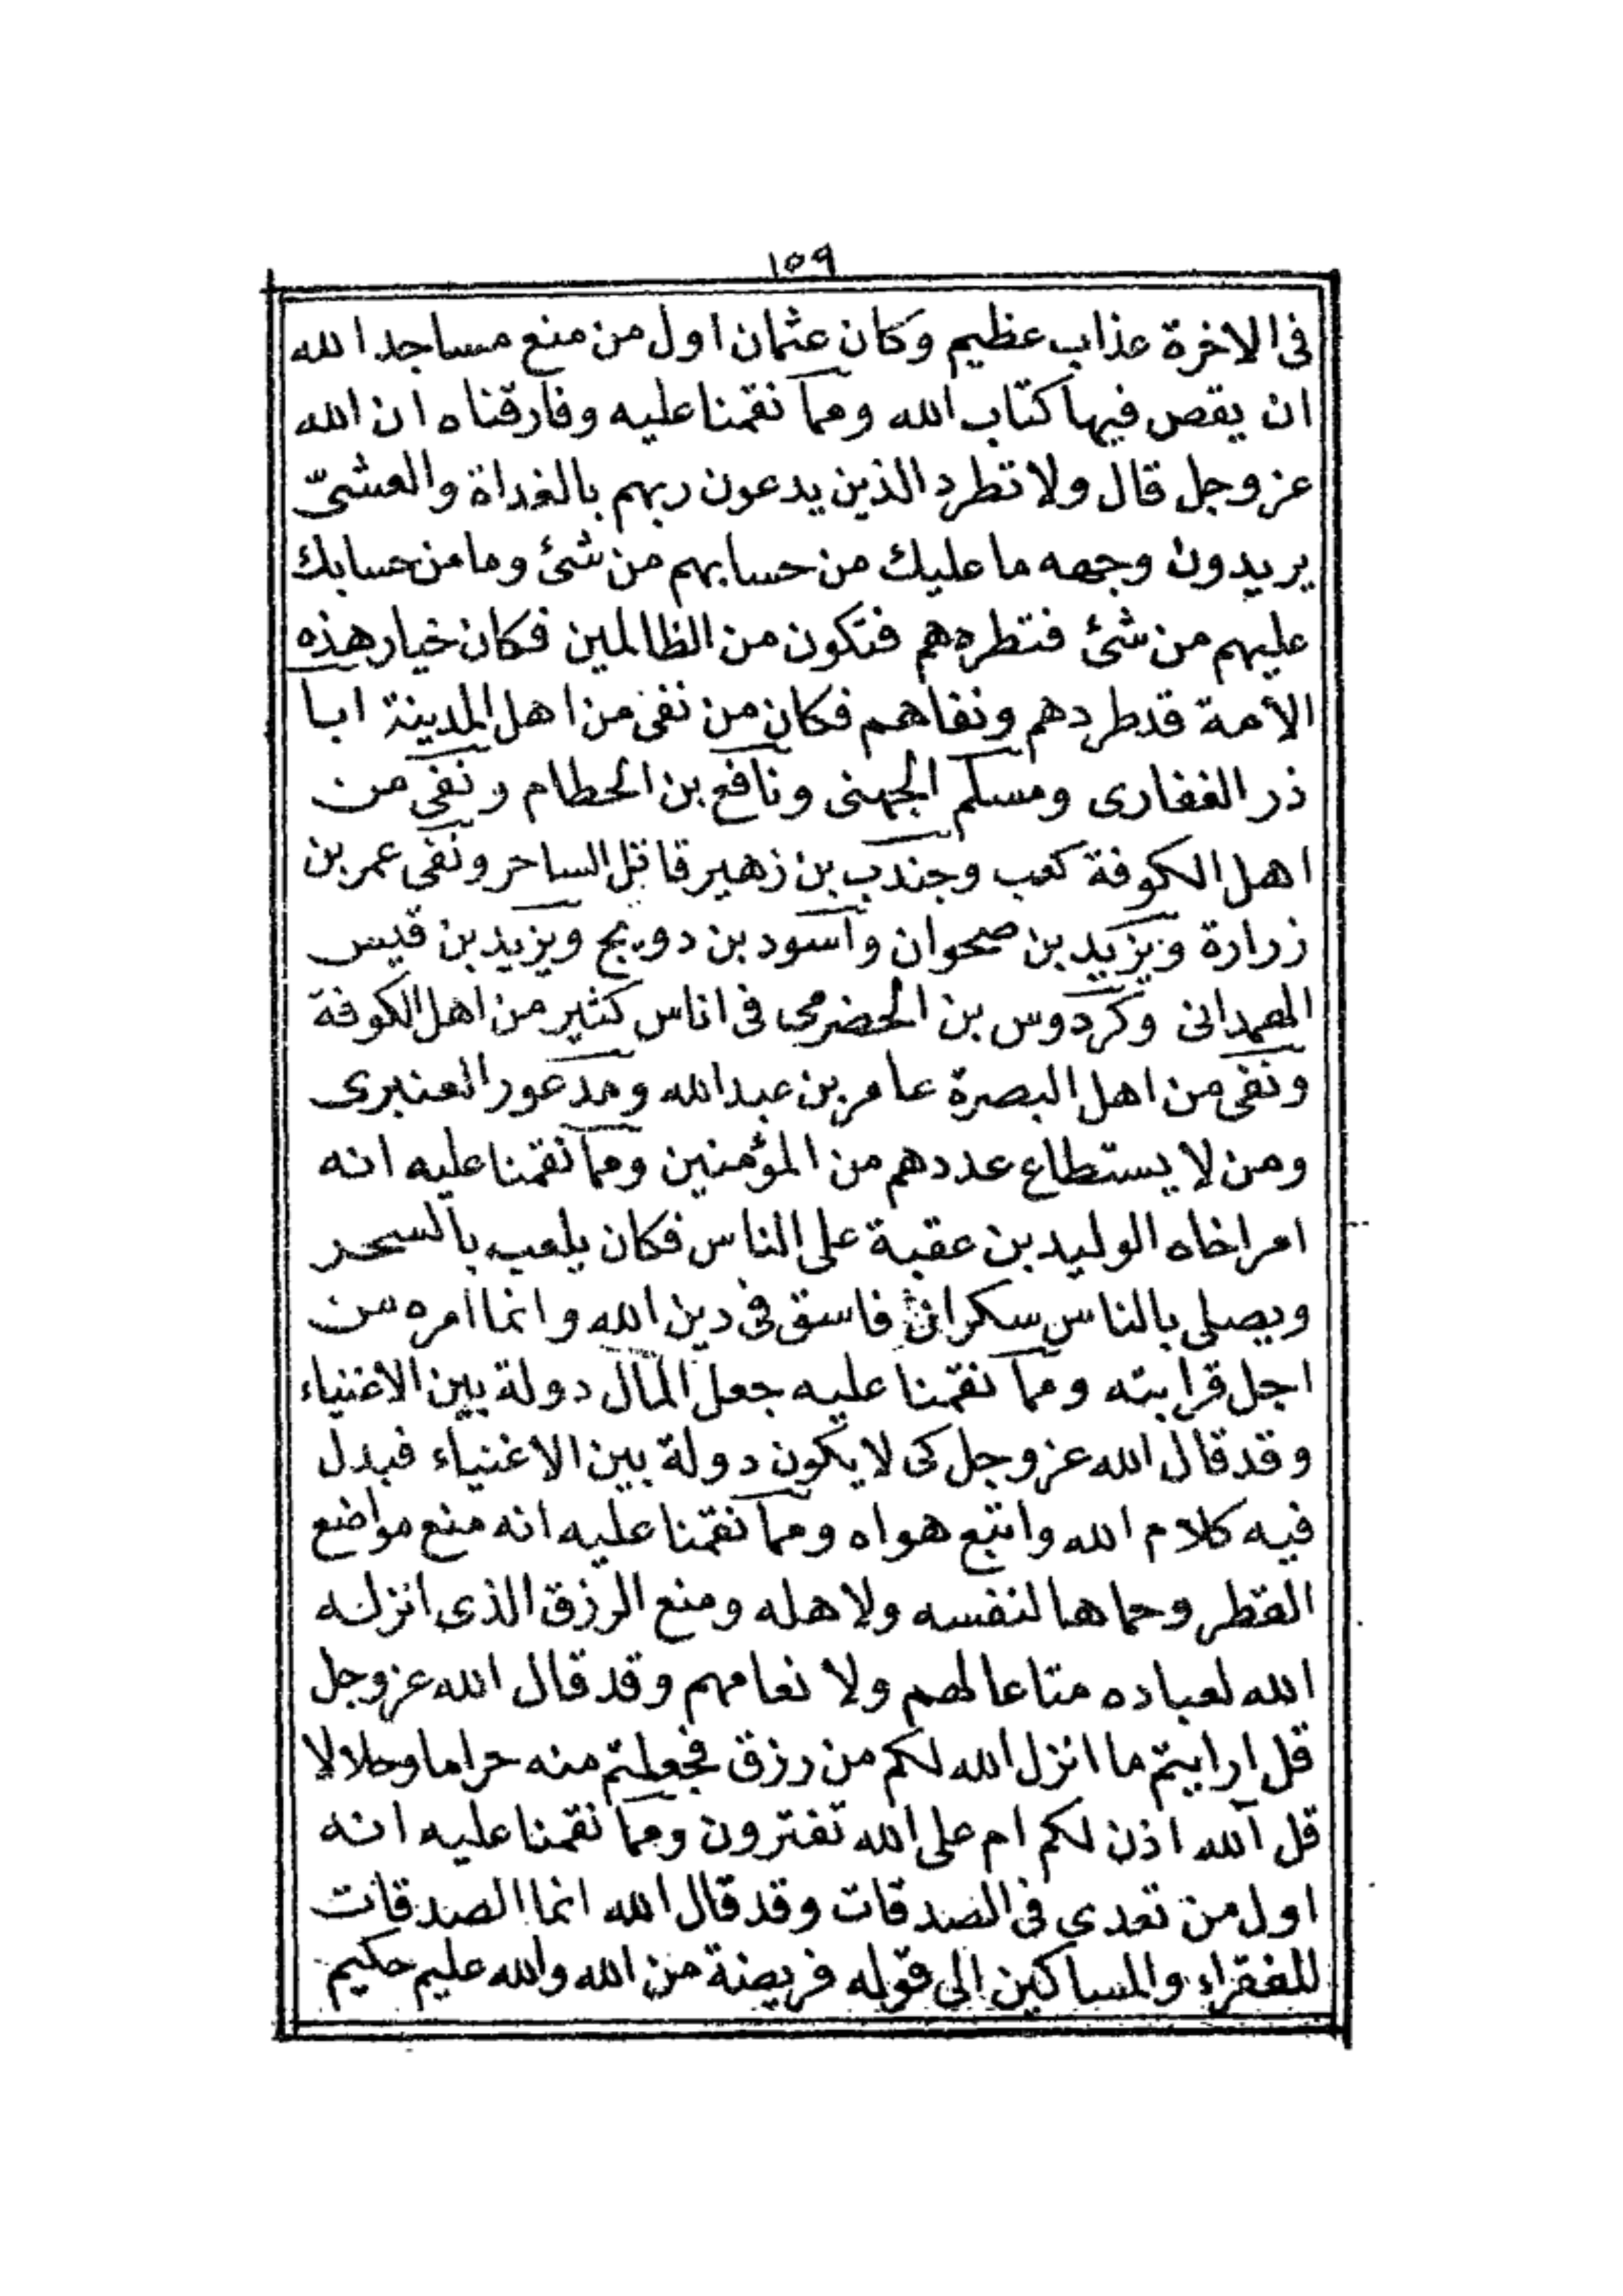 ١٥٩
فى الاخرة عذاب عظيم وكان عثمان اول من منع مساجد الله
ان يقص فيها كتاب الله ومما نقمنا عليه وفارقناه ان الله
عز وجل قال ولا تطرد الذين يدعون ربهم بالغداة والعشىّ
يريدون وجهه ما عليك من حسابهم من شئ وما من حسابك
عليهم من شئ فتطردهم فتكون من الظالمين فكان خيار هذه
الأمة قد طردهم ونفاهم فكان من نفى من اهل المدينة ابا
ذر الغفارى ومسلم الجهنى ونافع بن الحطام ونفى من
اهل الكوفة كعب وجندب بن زهير قاتل الساحر ونفى عمر بن
زرارة ويزيد بن صحوان واسود بن دويج ويزيد بن قيس
الهمدانى وكردوس بن الحضرمى فى اناس كثير من اهل الكوفة
ونفى من اهل البصرة عامر بن عبد الله ومدعور العنبرى
ومن لا يستطاع عددهم من المؤمنين ومما نقمنا عليه انه
امر اخاه الوليد بن عقبة على الناس فكان يلعب بالسحر
ويصلى بالناس سكران فاسق فى دين الله وانما امره من
اجل قرابته ومما نقمنا عليه جعل المال دولة بين الاغنياء
وقد قال الله عز وجل كى لا يكون دولة بين الاغنياء فبدل
فيه كلام الله واتبع هواه ومما نقمنا عليه انه منع مواضع
القطر وحماها لنفسه ولاهله ومنع الرزق الذى انزله
الله لعباده متاعا لهم ولا نعامهم وقد قال الله عز وجل
قل ارايتم ما انزل الله لكم من رزق فجعلتم منه حراما وحلالا
قل آلله اذن لكم ام على الله تفترون ومما نقمنا عليه انه
اول من تعدى فى الصدقات وقد قال الله انما الصدقات
للفقراء والمساكين الى قوله فريضة من الله والله عليم حكيم